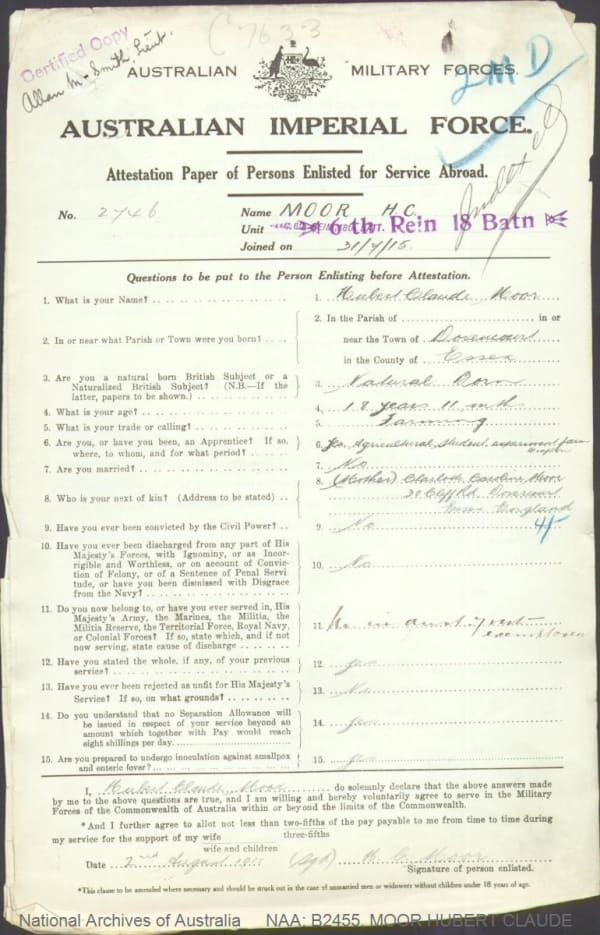 C 7633
Certified Copy
Allan M. Smith, Lieut.
AUSTRALIAN MILITARY FORCES.
2MD
AUSTRALIAN IMPERIAL FORCE.
Attestation Paper of Persons Enlisted for Service Abroad.
No. 2746
Name MOOR H.C.
Unit 6th Rein 18 Batn
Joined on 31/7/15.
Questions to be put to the Person Enlisting before Attestation.
1. What is your Name?
1. Hubert Claude Moor
2. In or near what Parish or Town were you born?
2. In the Parish of in or
near the Town of Dovercourt
in the County of Essex
3. Are you a natural born British Subject or a
Naturalized British Subject? (N.B.—If the
latter, papers to be shown.)
3. Natural Born
4. What is your age?
4. 18 years 11 mth
5. What is your trade or calling?
5. Farming
6. Are you, or have you been, an Apprentice? If so,
where, to whom, and for what period?
6. No. Agricultural Student experiment farm
7. Are you married?
7. No.
8. Who is your next of kin? (Address to be stated)
8. (Mother) Caroline Moor
Dovercourt
Essex England
9. Have you ever been convicted by the Civil Power?
9. No
4/-
10. Have you ever been discharged from any part of His
Majesty's Forces, with Ignominy, or as Incor-
rigible and Worthless, or on account of Convic-
tion of Felony, or of a Sentence of Penal Servi-
tude, or have you been dismissed with Disgrace
from the Navy?
10. No
11. Do you now belong to, or have you ever served in, His
Majesty's Army, the Marines, the Militia, the
Militia Reserve, the Territorial Force, Royal Navy,
or Colonial Forces? If so, state which, and if not
now serving, state cause of discharge
11.
12. Have you stated the whole, if any, of your previous
service?
12. yes
13. Have you ever been rejected as unfit for His Majesty's
Service? If so, on what grounds?
13. No
14. Do you understand that no Separation Allowance will
be issued in respect of your service beyond an
amount which together with Pay would reach
eight shillings per day.
14. yes
15. Are you prepared to undergo inoculation against smallpox
and enteric fever?
15. yes
I, Hubert Claude Moor do solemnly declare that the above answers made
by me to the above questions are true, and I am willing and hereby voluntarily agree to serve in the Military
Forces of the Commonwealth of Australia within or beyond the limits of the Commonwealth.
*And I further agree to allot not less than two-fifths of the pay payable to me from time to time during
three-fifths
my service for the support of my wife
wife and children
Date 2nd August 1915 (Sgd) H. C. Moor
Signature of person enlisted.
*This clause to be amended where necessary and should be struck out in the case of unmarried men or widowers without children under 18 years of age.
National Archives of Australia NAA: B2455, MOOR HUBERT CLAUDE